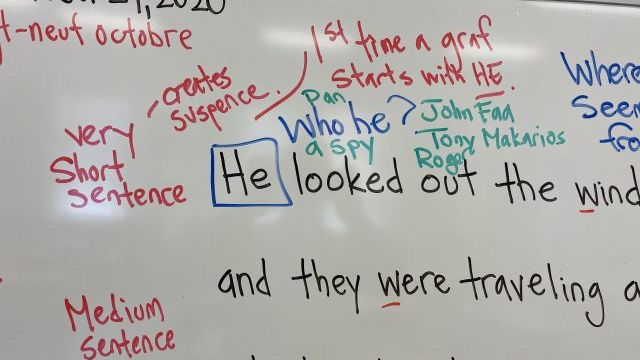 21, 2020
t-neuf octobre
1st time a graf
starts with HE.
creates
suspence.
Where
Seem
fro
Pan
Who he ?
a spy
John Faa
Tony Makarios
Roger
very
short
sentence
He looked out the wind
and they were traveling a
Medium
sentence